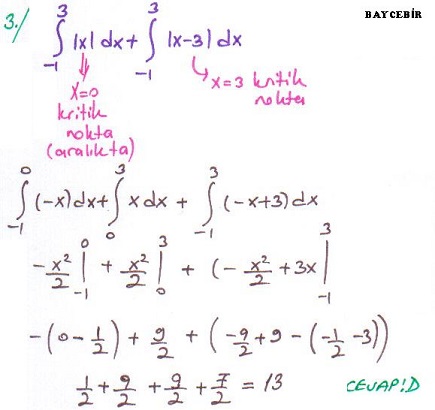 BAYCEBİR
3./ ∫₋₁³ |x| dx + ∫₋₁³ |x-3| dx
x=0 kritik nokta (aralıkta)
x=3 kritik nokta
∫₋₁⁰ (-x)dx + ∫₀³ x dx + ∫₋₁³ (-x+3) dx
-x²/2 |₋₁⁰ + x²/2 |₀³ + (-x²/2 + 3x |₋₁³
-(0 - 1/2) + 9/2 + (-9/2 + 9 - (-1/2 - 3))
1/2 + 9/2 + 9/2 + 7/2 = 13 CEVAP:D